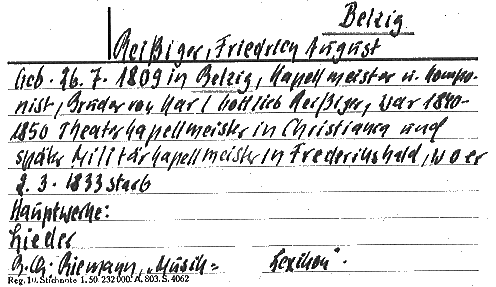 Belzig
Reißiger, Friedrich August
Geb. 26. 7. 1809 in Belzig, Kapellmeister u. Kompo-
nist, Bruder von Karl Gottlieb Reißiger, war 1840-
1850 Theaterkapellmeister in Christiana und
später Militärkapellmeister in Frederikshald, wo er
2. 3. 1833 starb
Hauptwerke:
Lieder
Riemann, „Musik= Lexikon".
Reg. 10. Stichnote 1. 50. 232 000. A. 803. S. 4062